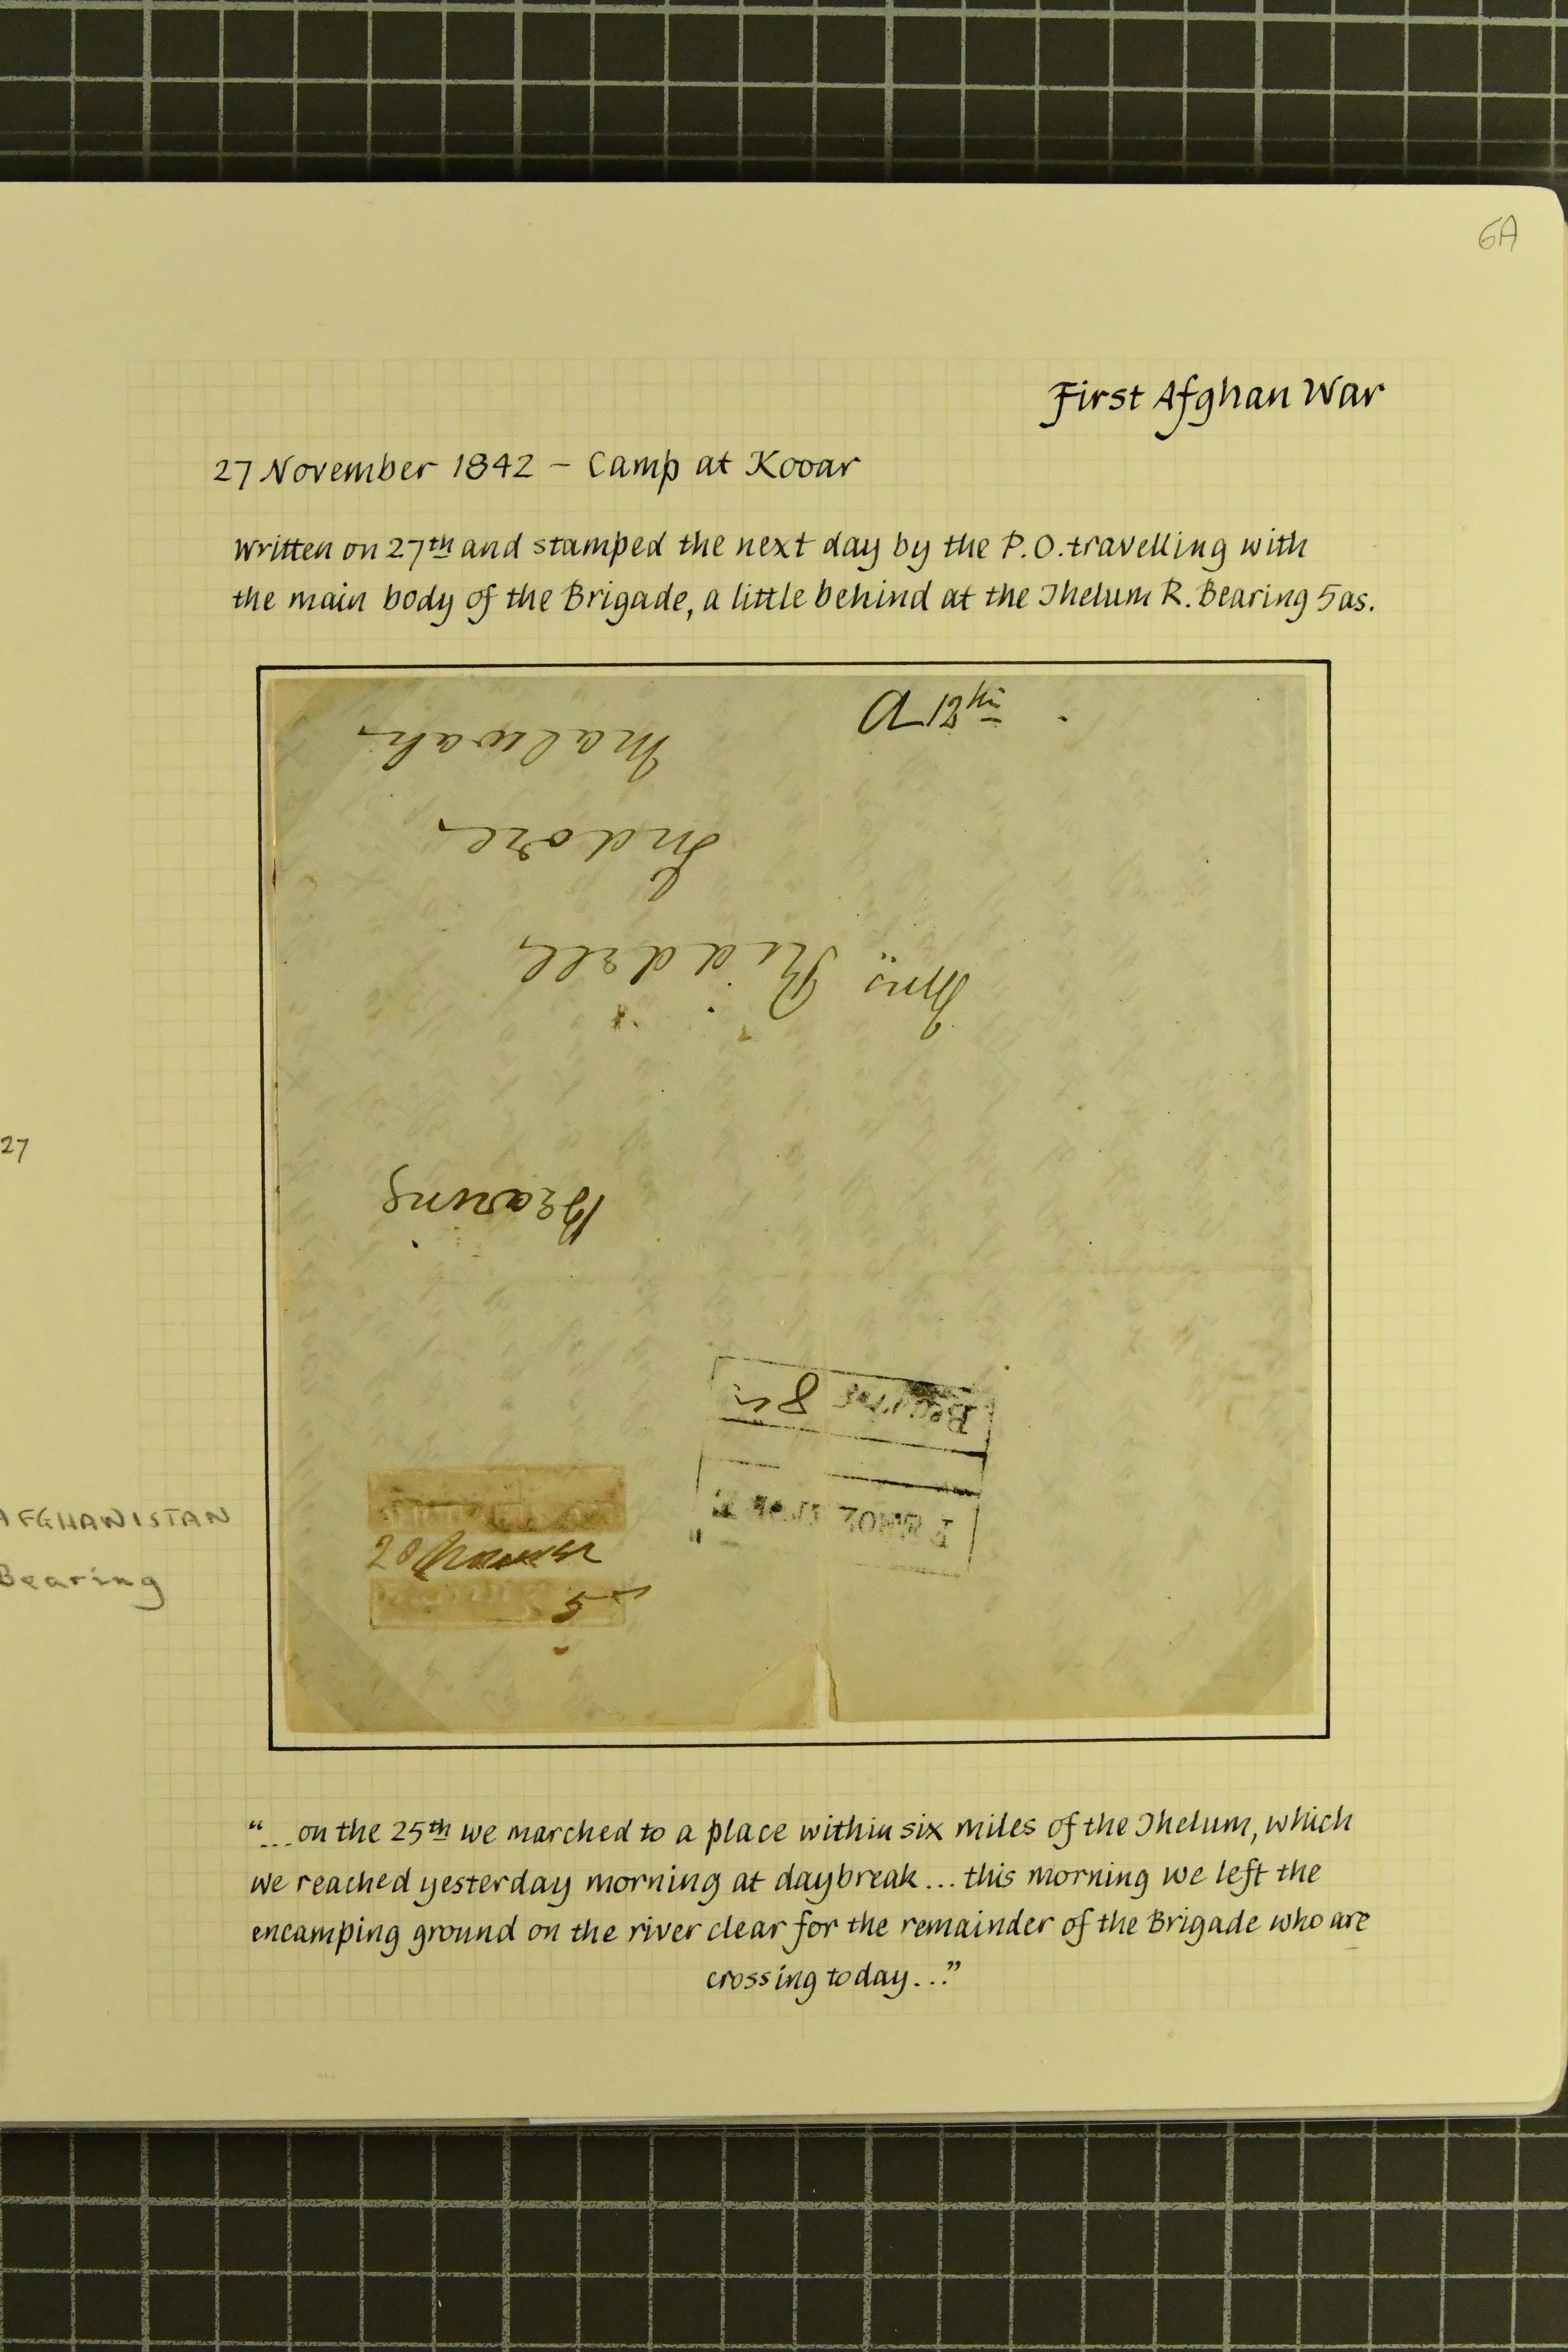 6A
First Afghan War
27 November 1842 – Camp at Kooar
Written on 27th and stamped the next day by the P.O. travelling with
the main body of the Brigade, a little behind at the Jhelum R. Bearing 5as.
A 13th
Malwah
Indore
Mrs Riddell
27
Bearing
Bearing 8
28
5
AFGHANISTAN
Bearing
"...on the 25th we marched to a place within six miles of the Jhelum, which
we reached yesterday morning at daybreak... this morning we left the
encamping ground on the river clear for the remainder of the Brigade who are
crossing today..."